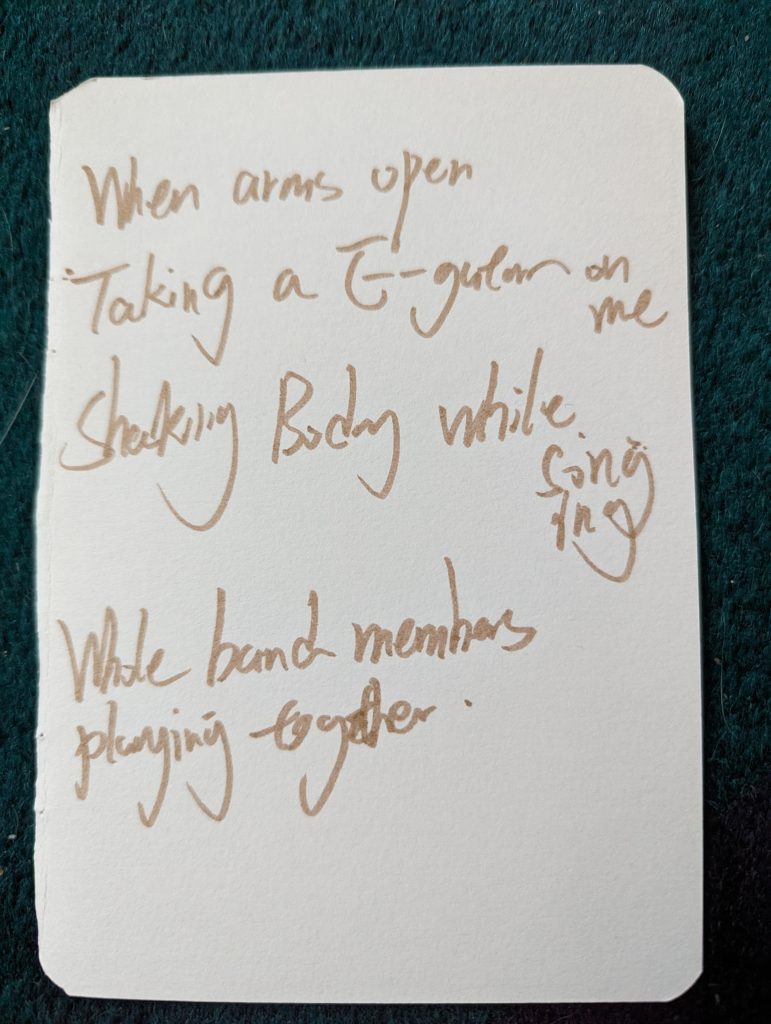 When arms open
Taking a E-guitar on
me
Shaking Body while
sing
ing
Whole band members
playing together.